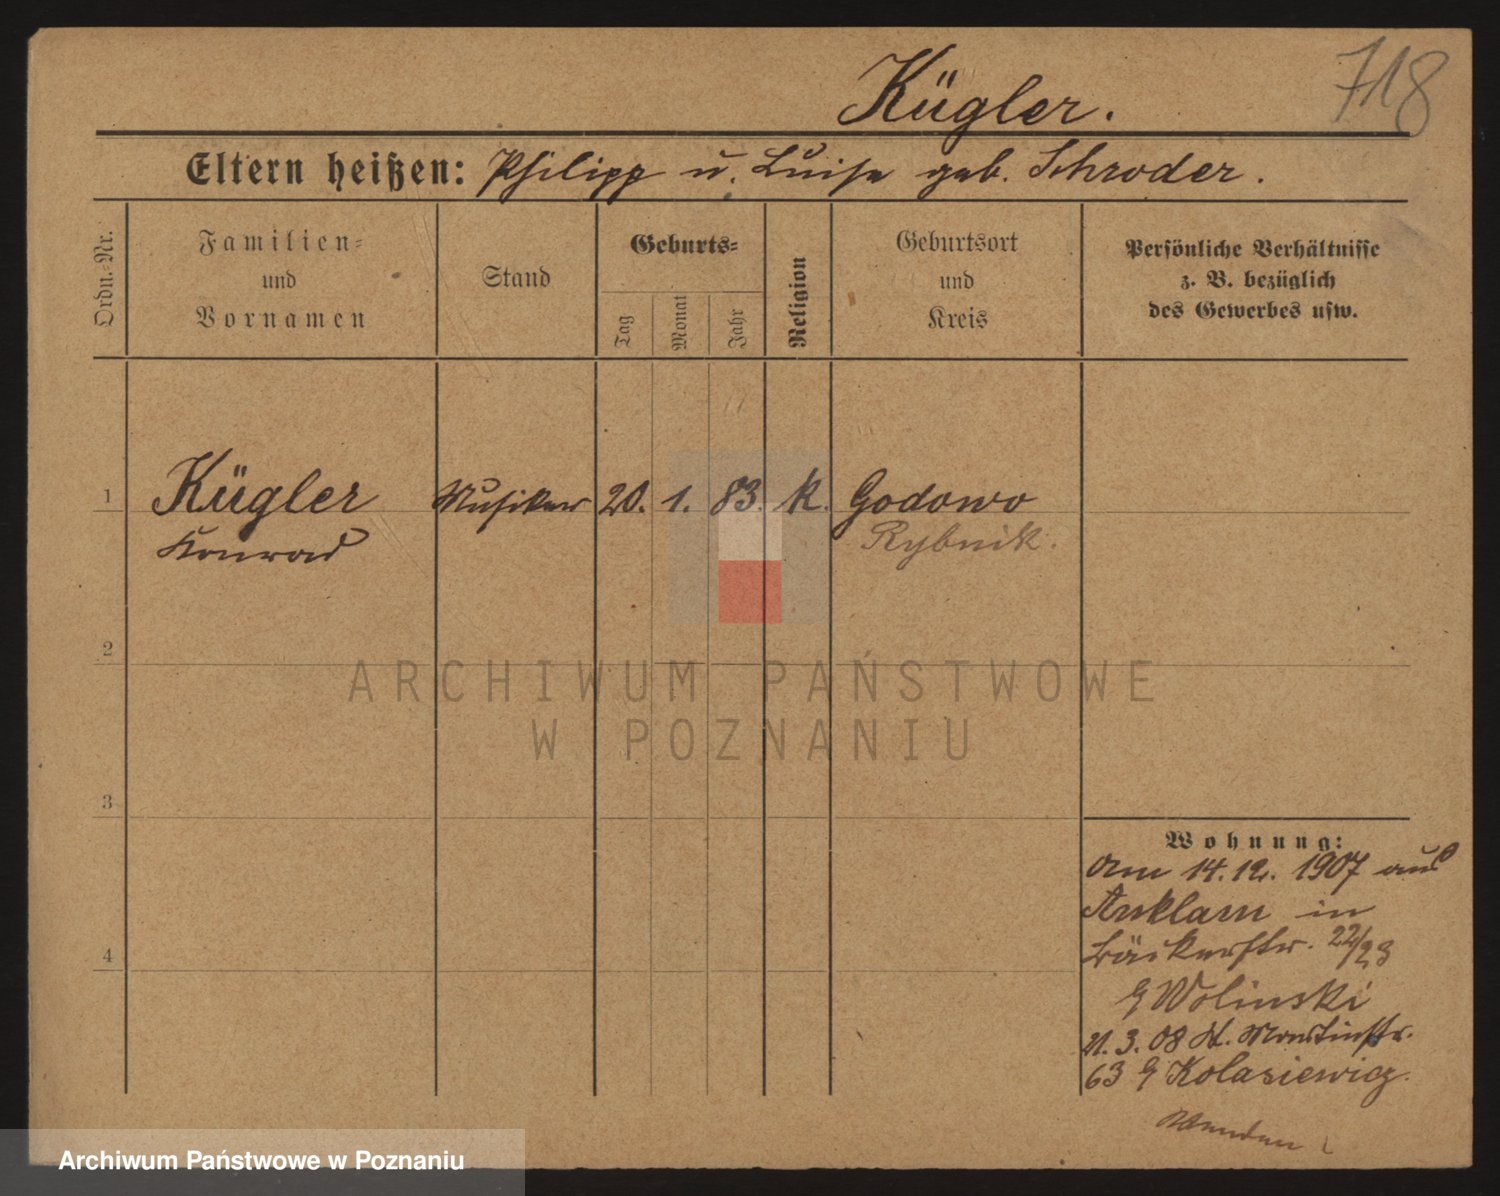 Kügler.
718
Eltern heißen: Philipp u. Luise geb. Schroder.
Ordn.=Nr.
Familien=
und
Vornamen
Stand
Geburts=
Tag
Monat
Jahr
Religion
Geburtsort
und
Kreis
Persönliche Verhältnisse
z. B. bezüglich
des Gewerbes usw.
1
Kügler
Konrad
Musiker
20.
1.
83.
k.
Godowo
Rybnik.
2
3
4
ARCHIWUM PAŃSTWOWE
W POZNANIU
Wohnung:
Am 14.12. 1907 aus
Anklam in
Bäckerstr. 22/23
Wolinski
21.3.08 St. Martinstr.
63 Kolasiewicz.
Wenden
Archiwum Państwowe w Poznaniu